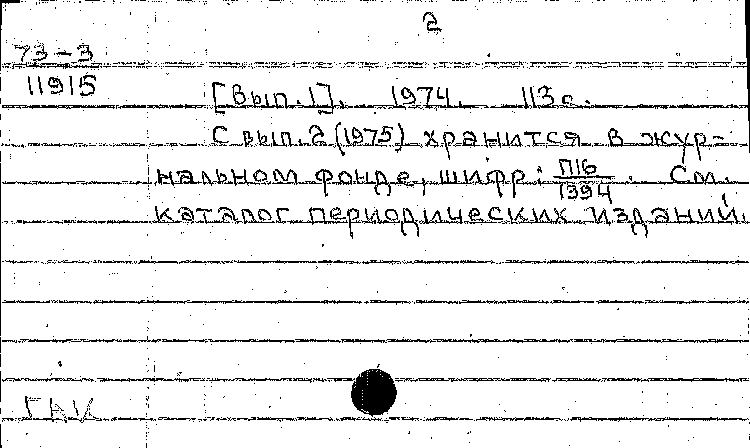 2
73-3
11915
[Вып.1]. 1974. 113с.
С вып.2(1975) хранится в жур-
нальном фонде, шифр: П16/1394. См.
каталог периодических изданий.
ГАК